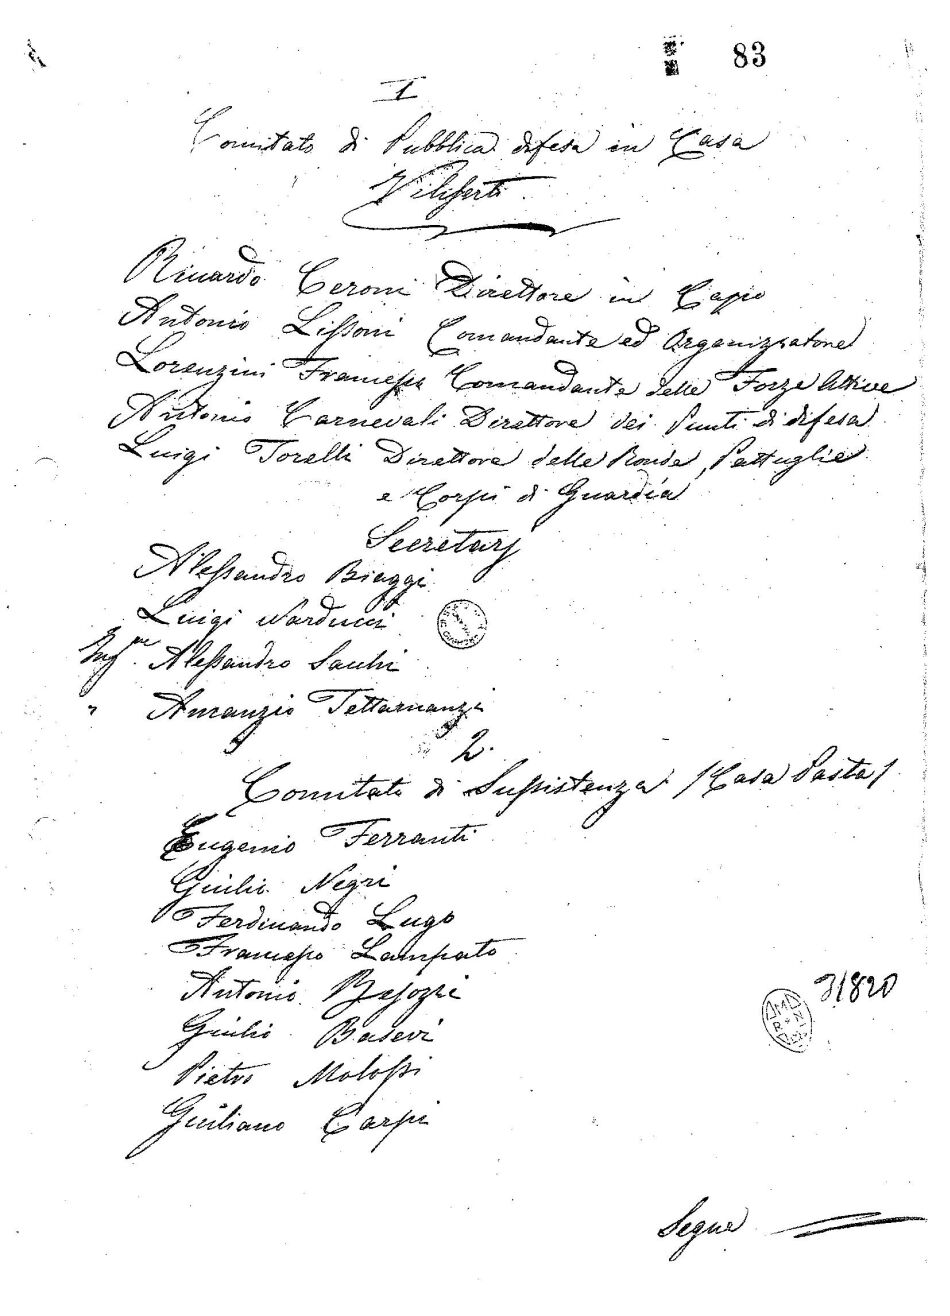 83
I
Comitato di Pubblica difesa in Casa
Riccardo Ceroni Direttore in Capo
Antonio Lissoni Comandante ed Organizzatore
Lorenzini Francesco Comandante delle Forze Attive
Antonio Carnevali Direttore dei Punti di difesa
Luigi Torelli Direttore delle Ronde, Pattuglie
e Corpi di Guardia
Secretarj
Alessandro Biaggi
Luigi Narducci
Ing.re Alessandro Sacchi
" Amanzio Tettamanzi
2.
Comitato di Sussistenza /Casa Pasta/
Eugenio Ferranti
Giulio Negri
Ferdinando Lugo
Francesco Lampato
Antonio
Giulio Basevi
Pietro Molossi
Giuliano Carpi
31820
Segue